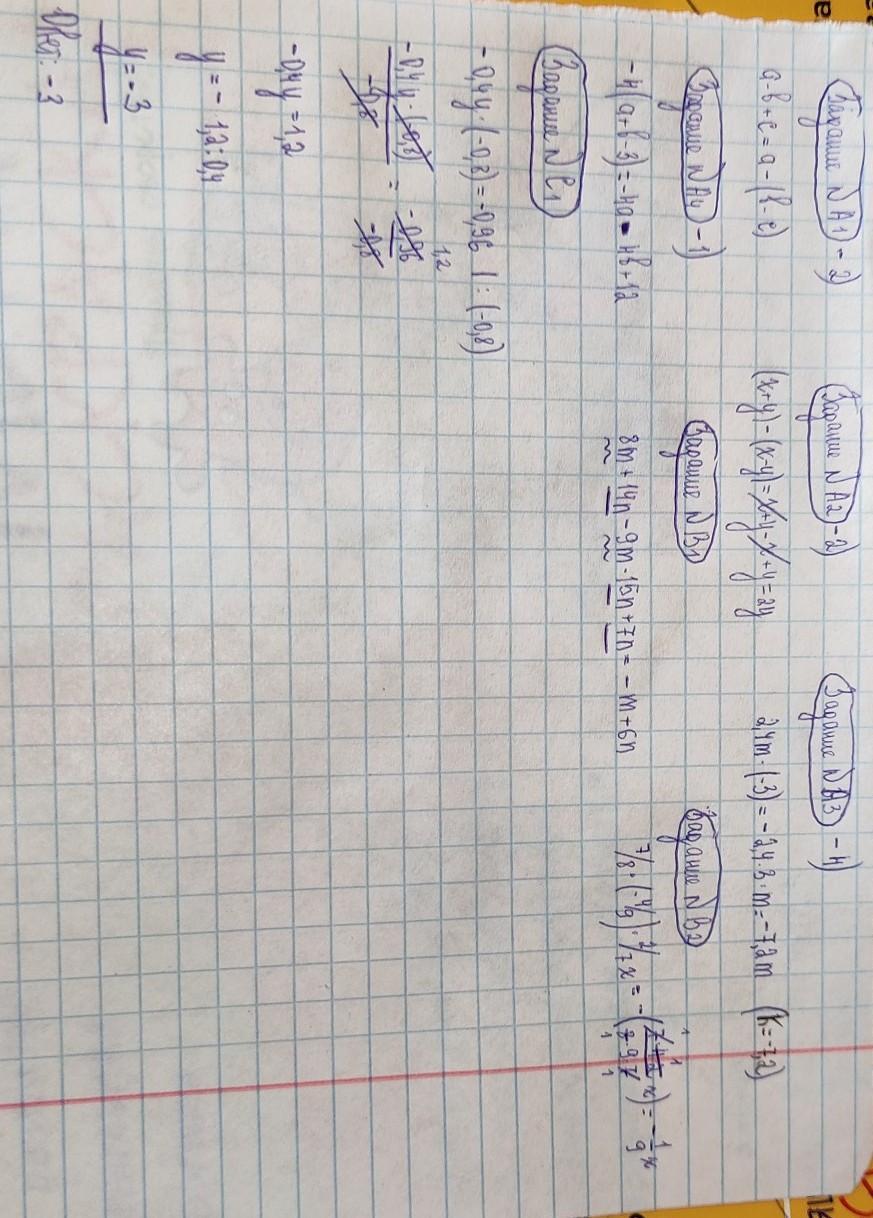 Задание №A1 - 2)
a-b+c=a-(b-c)
Задание №A2 - 2)
(x+y)-(x-y)=x+y-x+y=2y
Задание №A3 - 4)
2,4m·(-3)=-2,4·3·m=-7,2m (K=-7,2)
Задание №A4 - 1)
-4(a+b-3)=-4a-4b+12
Задание №B1
8m+14n-9m-15n+7n=-m+6n
Задание №B2
7/8·(-4/9)·2/7x=-(7·4·2/8·9·7 x)=-1/9x
Задание №C1
-0,4y·(-0,8)=-0,96 |:(-0,8)
-0,4y·(-0,8)/-0,8 = -0,96/-0,8 1,2
-0,4y=1,2
y=-1,2:0,4
y=-3
Ответ: -3